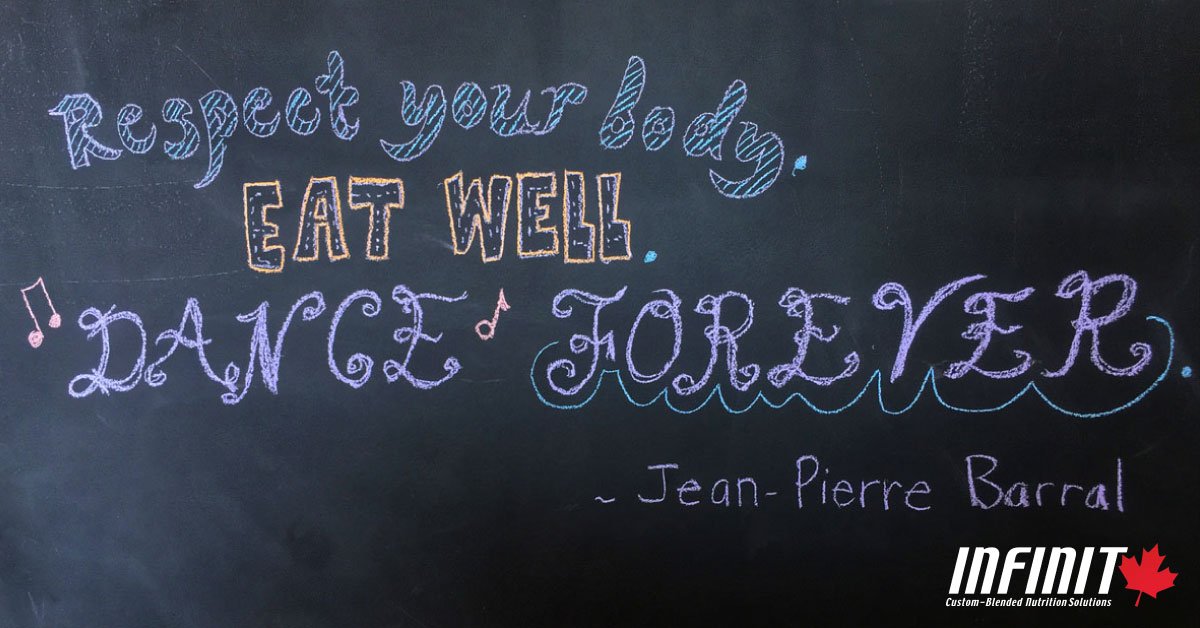 Respect your body.
EAT WELL.
DANCE FOREVER.
~ Jean-Pierre Barral
INFINIT
Custom-Blended Nutrition Solutions